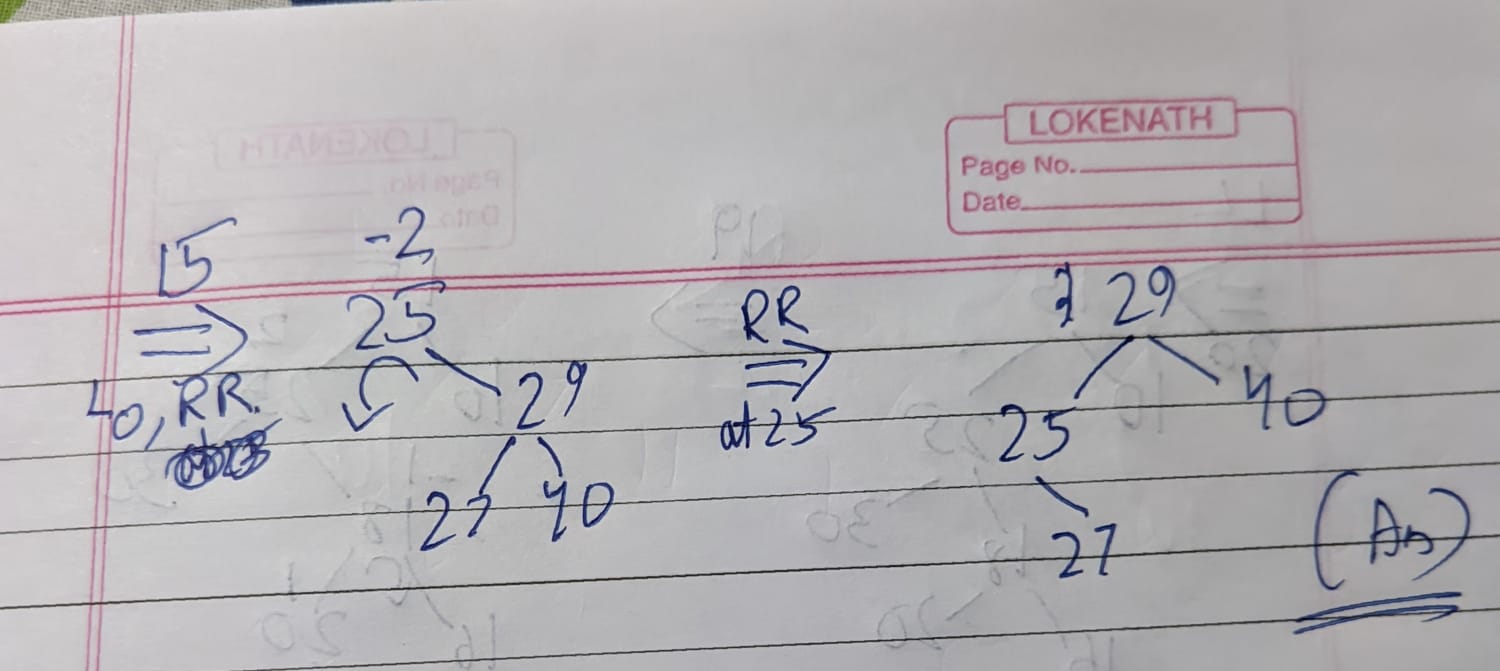 LOKENATH
Page No.
Date
15
-2
25
29
27 40
40, RR.
RR
at 25
29
25 40
27
(Ans)